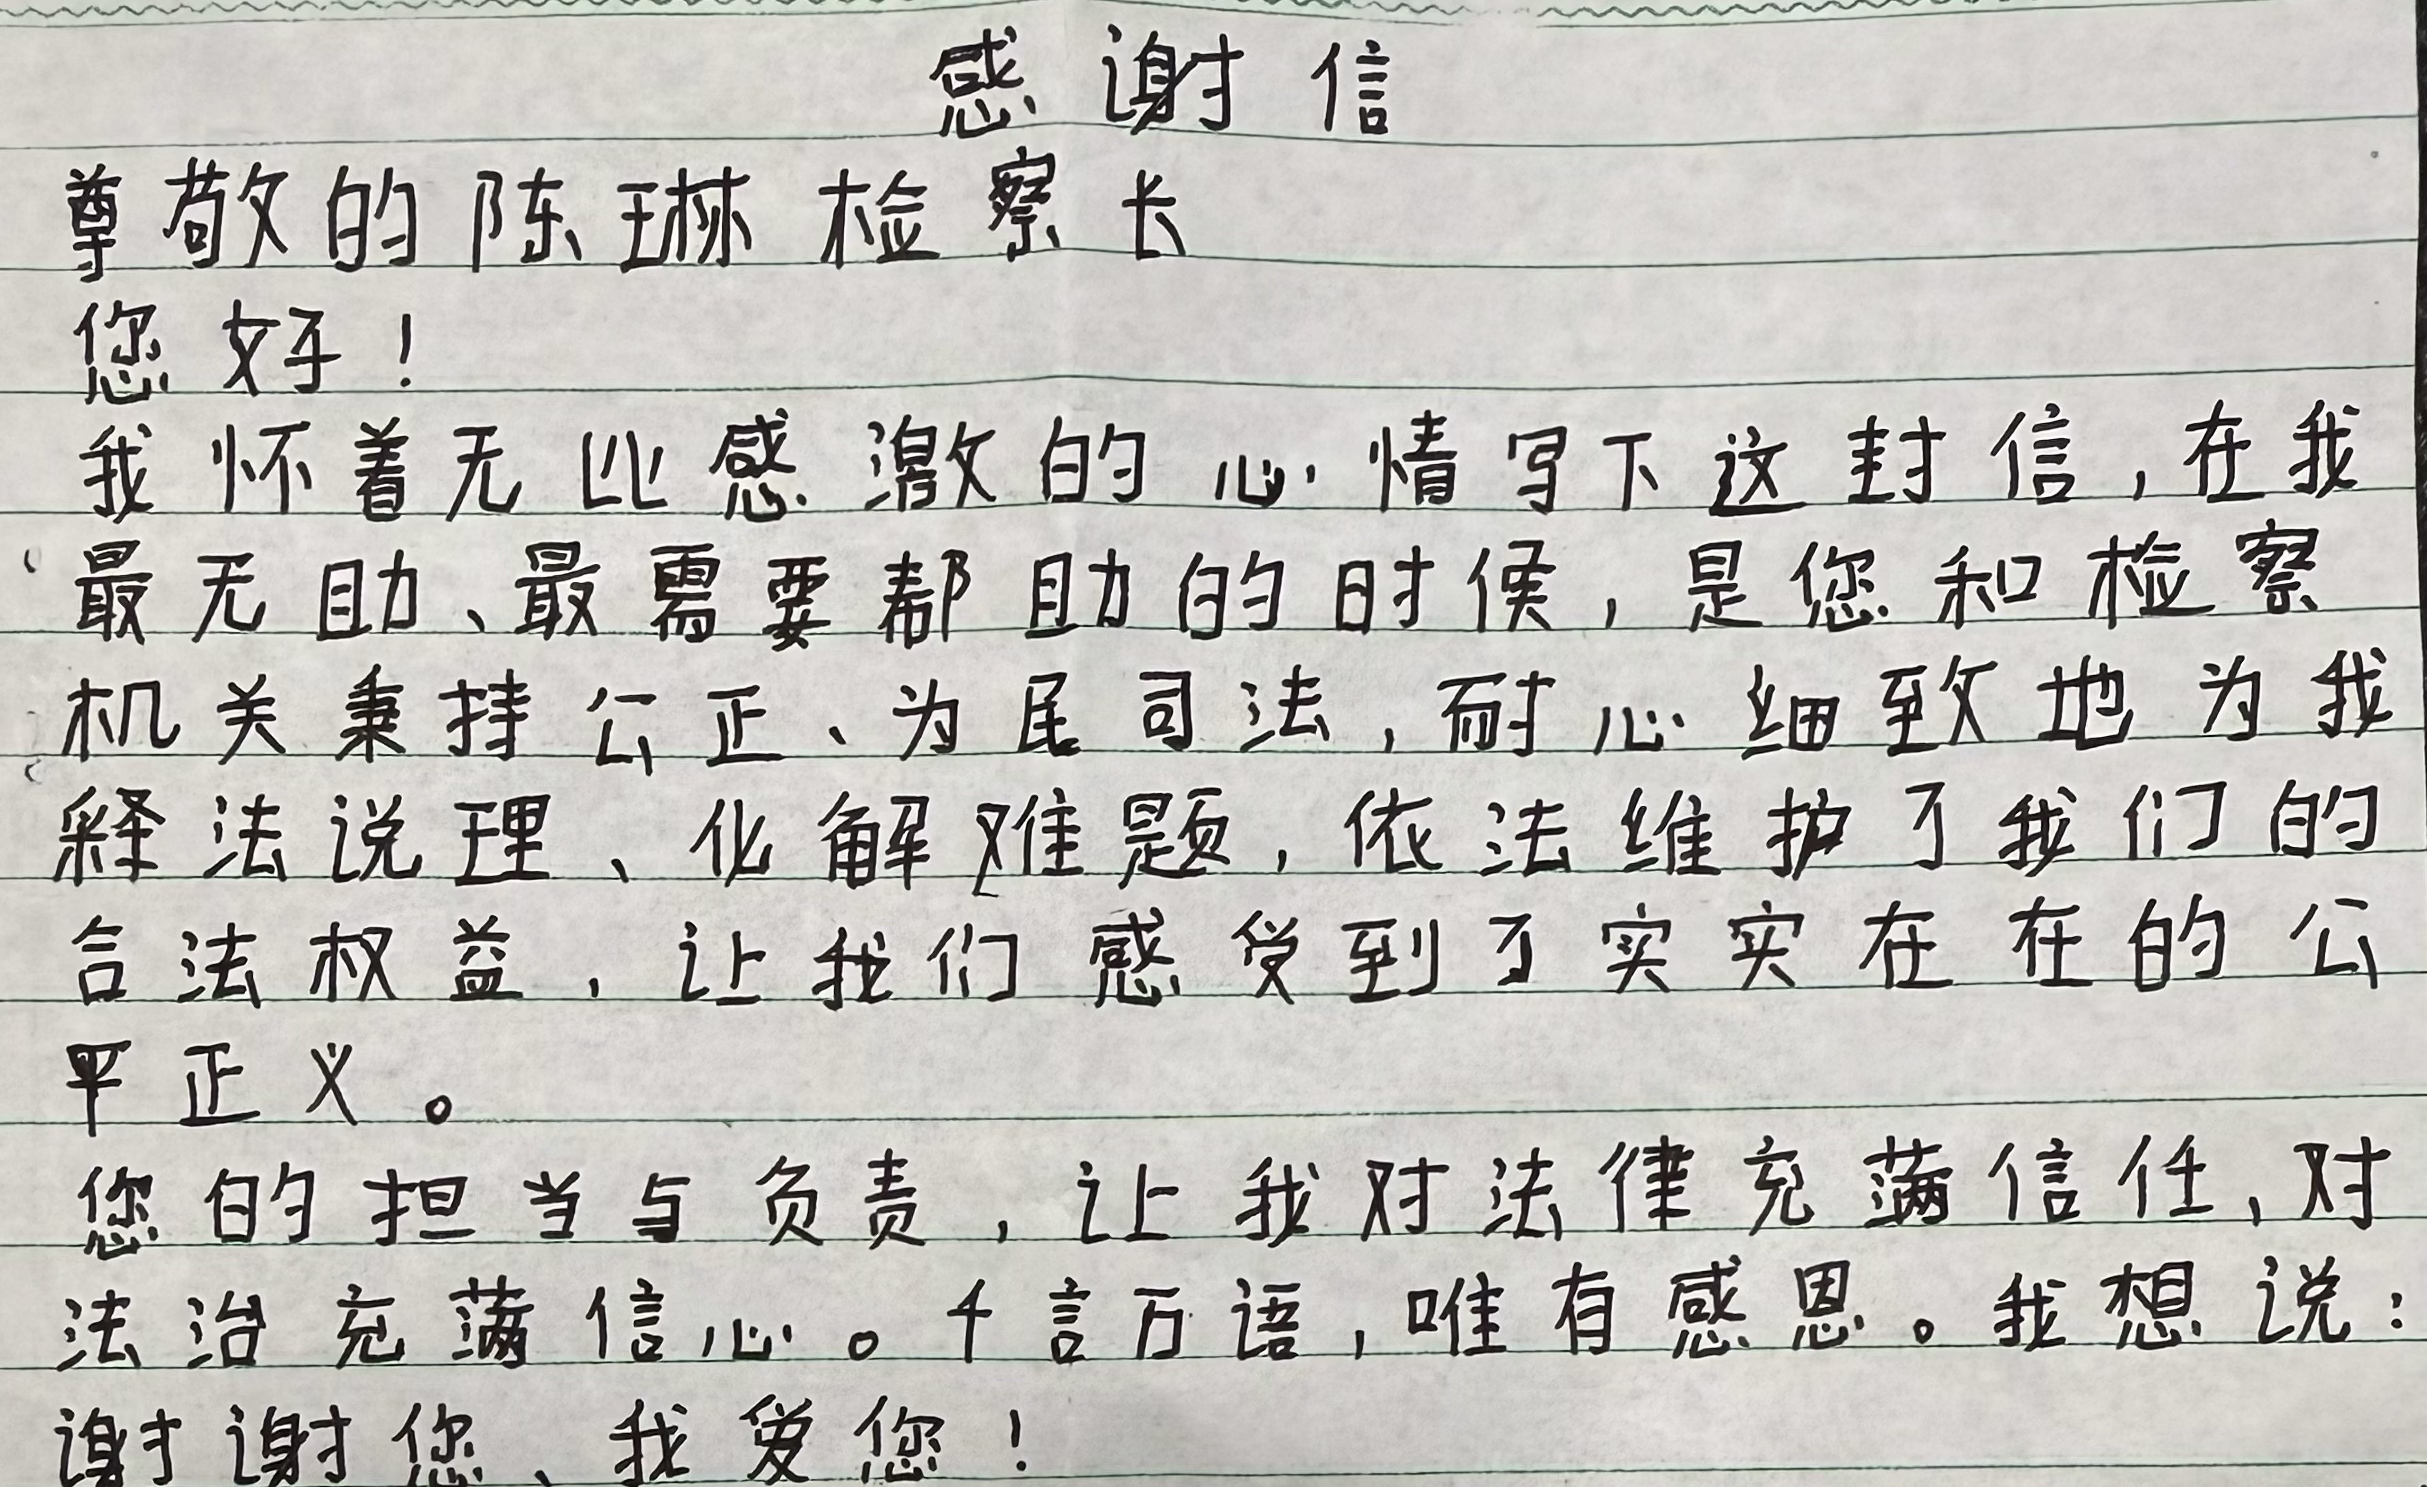 感谢信
尊敬的陈琳检察长
您好！
我怀着无比感激的心情写下这封信，在我
最无助、最需要帮助的时候，是您和检察
机关秉持公正、为民司法，耐心细致地为我
释法说理、化解难题，依法维护了我们的
合法权益，让我们感受到了实实在在的公
平正义。
您的担当与负责，让我对法律充满信任、对
法治充满信心。千言万语，唯有感恩。我想说：
谢谢您、我爱您！